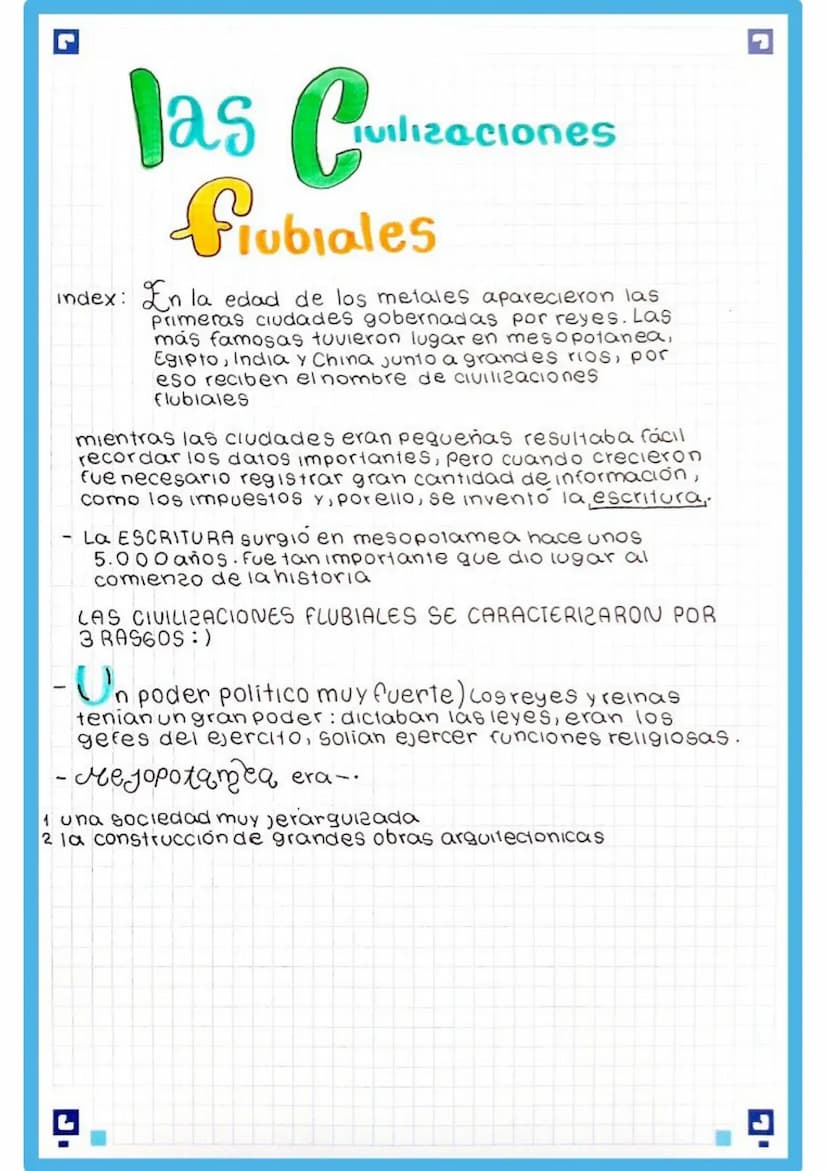 las Civilizaciones
flubiales
index: En la edad de los metales aparecieron las
primeras ciudades gobernadas por reyes. Las
más famosas tuvieron lugar en mesopotanea,
Egipto, India y China junto a grandes rios, por
eso reciben el nombre de civilizaciones
flubiales
mientras las ciudades eran pequeñas resultaba fácil
recordar los datos importantes, pero cuando crecieron
fue necesario registrar gran cantidad de información,
como los impuestos y, por ello, se inventó la escritura.
- La ESCRITURA surgió en mesopotamea hace unos
5.000 años. Fue tan importante que dio lugar al
comienzo de la historia
LAS CIVILIZACIONES FLUBIALES SE CARACTERIZARON POR
3 RASGOS :)
- Un poder político muy fuerte) Los reyes y reinas
tenian un gran poder: dictaban las leyes, eran los
gefes del ejercito, solian ejercer funciones religiosas.
- Mesopotamea era-.
1 una sociedad muy jerarquizada
2 la construcción de grandes obras arquitectonicas